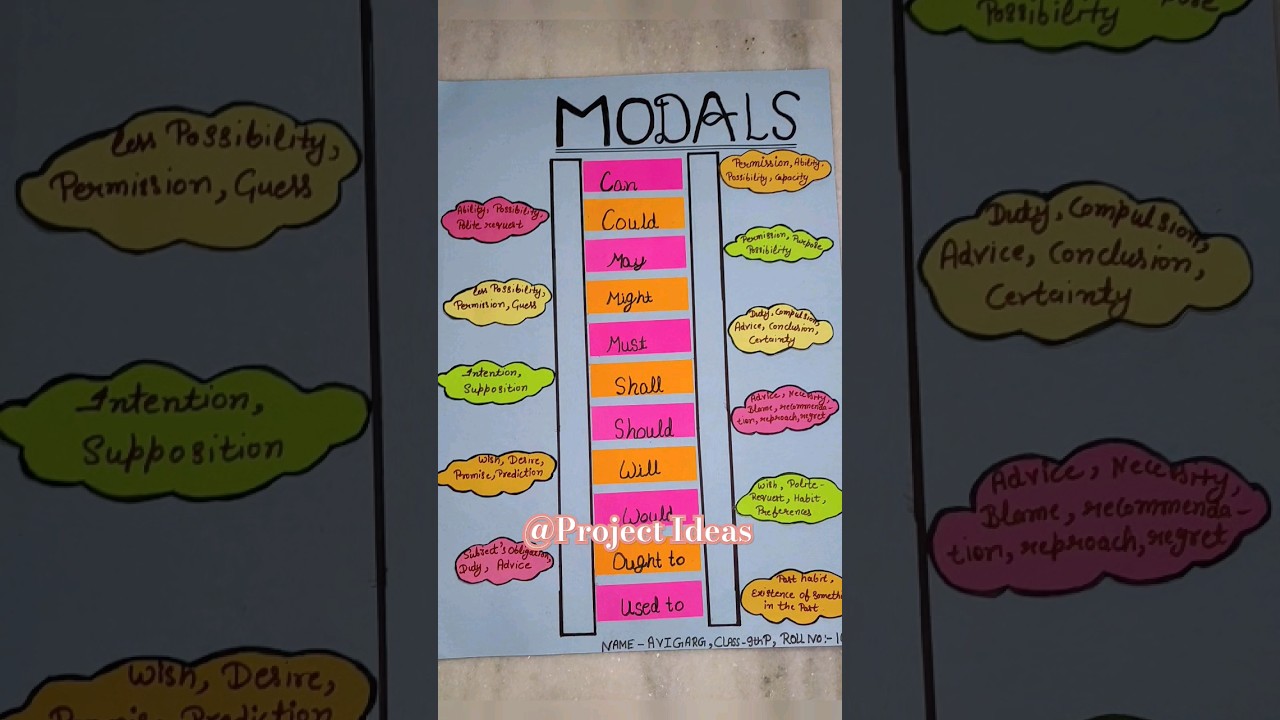 MODALS
Can
Permission, Ability,
Possibility, Capacity
Could
Ability, Possibility,
Polite request
May
Permission, Purpose
Possibility
Might
less Possibility,
Permission, Guess
Must
Duty, Compulsion,
Advice, Conclusion,
Certainty
Shall
Intention,
Supposition
Should
Advice, Necessity,
Blame, recommenda-
tion, reproach, regret
Will
Wish, Desire,
Promise, Prediction
Would
Wish, Polite-
Request, Habit,
Preferences
@Project Ideas
Ought to
Subject's Obligation,
Duty, Advice
Used to
Past habit,
Existence of
in the Past
NAME - AVI GARG, CLASS - 9th P, ROLL NO:-
less Possibility,
Permission, Guess
Intention,
Supposition
Wish, Desire,
Promise, Prediction
Possibility
Duty, Compulsion,
Advice, Conclusion,
Certainty
Advice, Necessity,
Blame, recommenda-
tion, reproach, regret